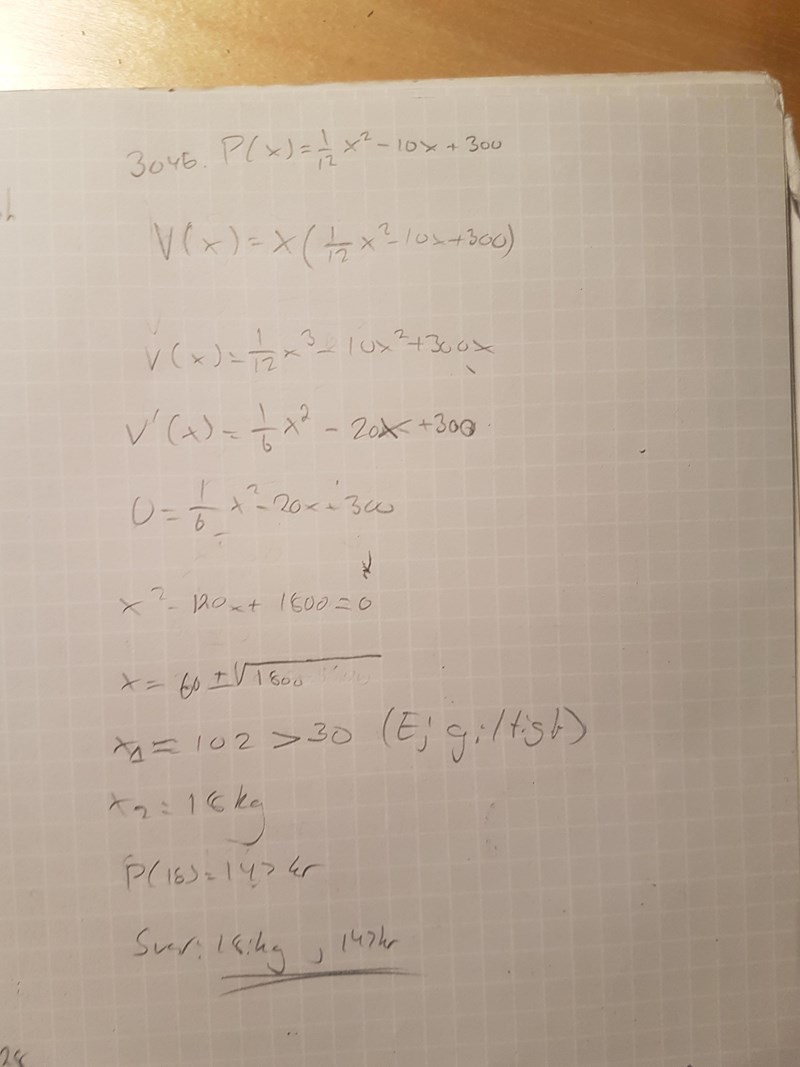 3045. P(x)=1/12 x²-10x+300
V(x)=x(1/12 x²-10x+300)
V(x)=1/12 x³-10x²+300x
V'(x)=1/6 x²-20x+300
0=1/6 x²-20x+300
x²-120x+1800=0
x=60±√1800
x₁=102>30 (Ej giltigt)
x₂=18kg
P(18)=147kr
Svar: 18kg, 147kr
28